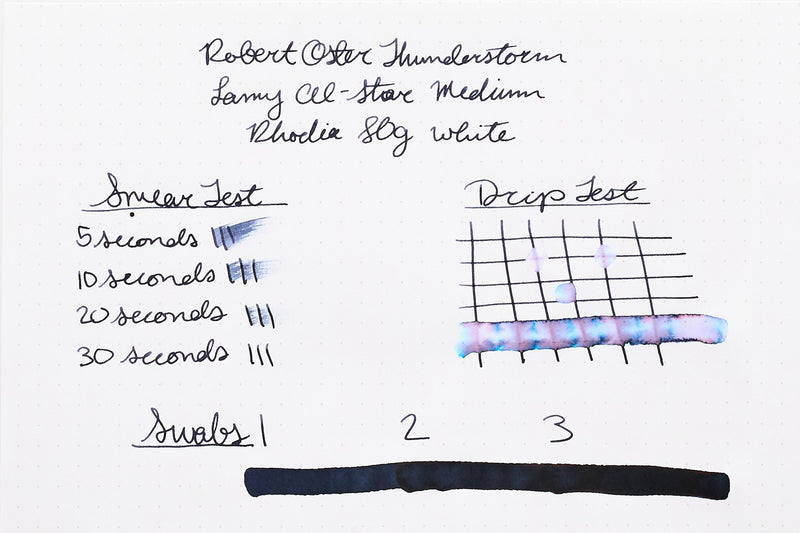 Robert Oster Thunderstorm
Lamy Al-Star Medium
Rhodia 80g white
Smear Test
5 seconds
10 seconds
20 seconds
30 seconds
Drip Test
Swabs 1 2 3